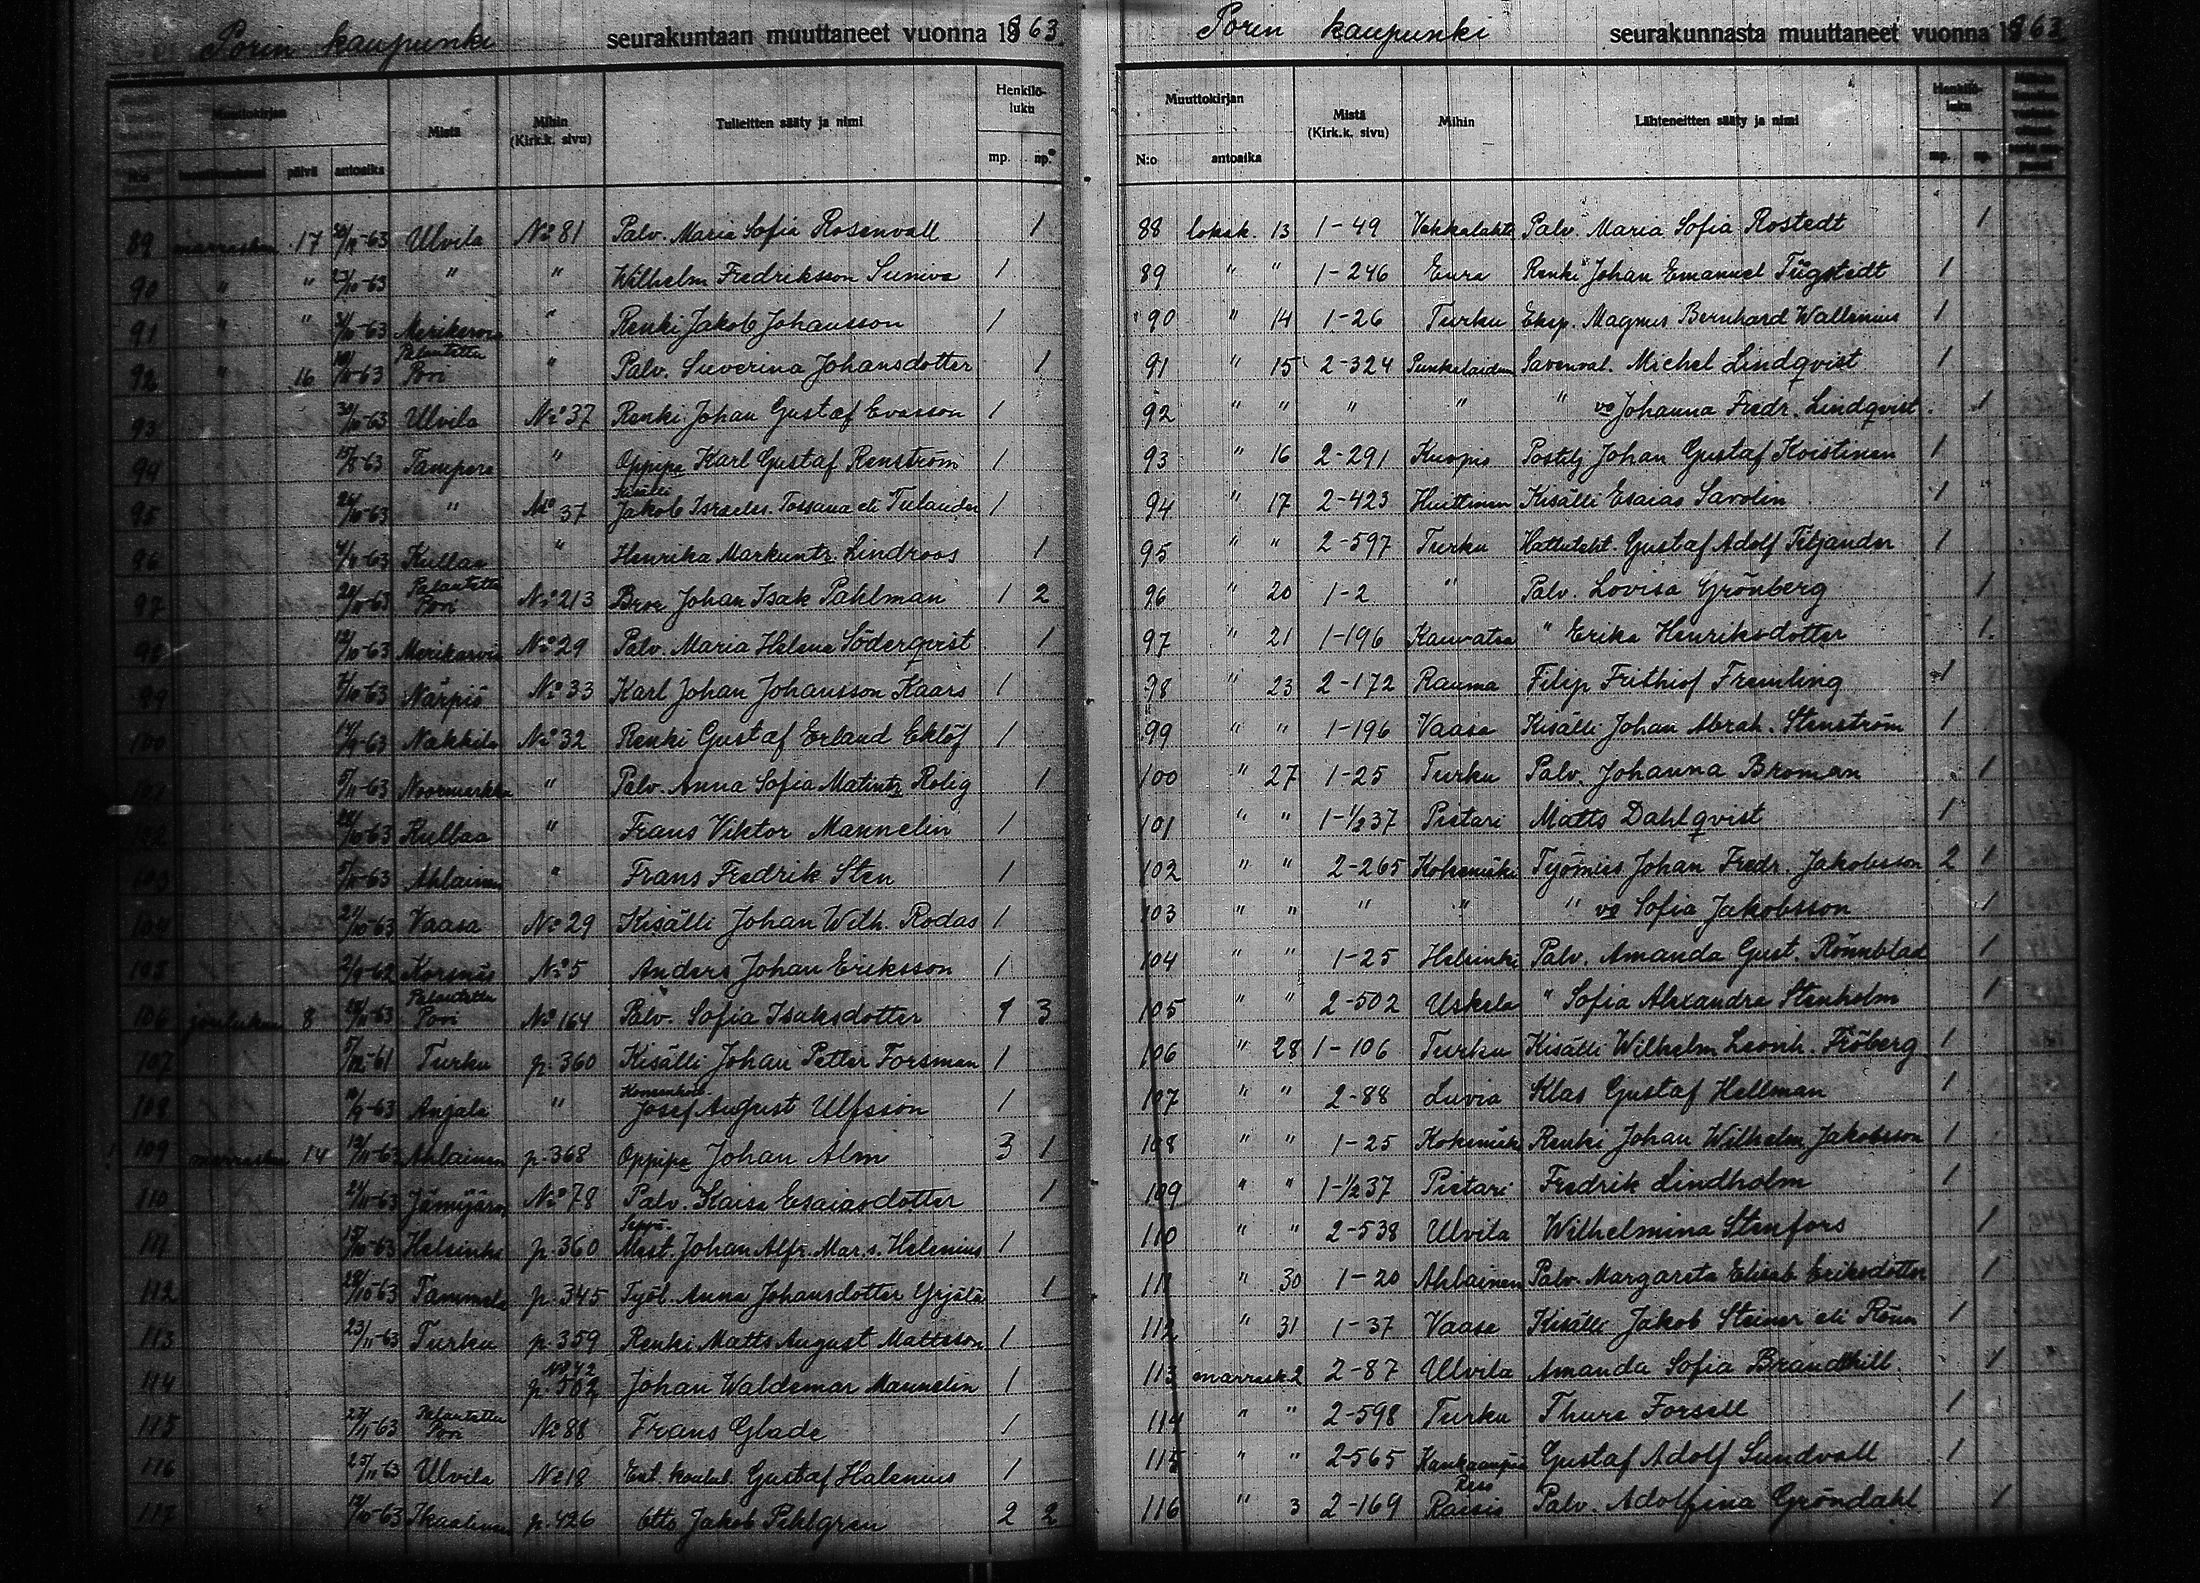 Porin kaupunki seurakuntaan muuttaneet vuonna 1863
Muuttokirjan Mistä Mihin (Kirk.k. sivu) Tulleitten sääty ja nimi Henkilö-luku
päivä antoaika mp. np.
89 marrask. 17 Ulvila No 81 Palv. Maria Sofia Rosenvall 1
90 " " " " Wilhelm Fredriksson Suniva 1
91 " " Merikarvia " Renki Jakob Johansson 1
92 " 16 Palautettu Pori " Palv. Severina Johansdotter 1
93 30/10-63 Ulvila No 37 Renki Johan Gustaf Evasson 1
94 Tampere " Oppipa Karl Gustaf Renström 1
95 " No 37 Kisälli Jakob Israelss. Tossana eli Tulander 1
96 Kullaa " Henrika Markuntr. Lindroos 1
97 Palautettu Pori No 213 Johan Isak Pahlman 1 2
98 Merikarvia No 29 Palv. Maria Helena Söderqvist 1
99 Närpiö No 33 Karl Johan Johansson Kaars 1
100 Nakkila No 32 Renki Gustaf Erland Eklöf 1
101 Noormarkku " Palv. Anna Sofia Matintr. Rolig 1
102 Kullaa " Frans Viktor Mannelin 1
103 Ahlainen " Frans Fredrik Sten 1
104 Vaasa No 29 Kisälli Johan Wilh. Rodas 1
105 Korsnäs No 5 Anders Johan Eriksson 1
106 jouluku 8 Palautettu Pori No 164 Palv. Sofia Isaksdotter 1 3
107 Turku p. 360 Kisälli Johan Petter Forsman 1
108 Anjala " Josef August Ulfsson 1
109 marrask. 14 Ahlainen p. 368 Oppipa Johan Alm 3 1
110 Jämijärvi No 78 Palv. Kaisa Esaiasdotter 1
111 Helsinki p. 360 Seppä. Mest. Johan Alfr. Mar.s. Helenius 1
112 Tammela p. 345 Työl. Anna Johansdotter Yrjälä 1
113 23/11-63 Turku p. 359 Renki Matts August Mattsson 1
114 No 42 p. 502 Johan Waldemar Mannelin 1
115 Palautettu Pori No 88 Frans Glade 1
116 25/11-63 Ulvila No 18 Ent. koulul. Gustaf Halenius 1
117 Ikaalinen p. 426 Otto Jakob Pihlgren 2 2
Porin kaupunki seurakunnasta muuttaneet vuonna 1863
Muuttokirjan Mistä (Kirk.k. sivu) Mihin Lähteneitten sääty ja nimi Henkilö-luku
N:o antoaika mp. np.
88 lokak. 13 1-49 Vehkalahti Palv. Maria Sofia Rostedt 1
89 " " 1-246 Eura Renki Johan Emanuel Tügstedt 1
90 " 14 1-26 Turku Eksp. Magnus Bernhard Wallenius 1
91 " 15 2-324 Punkalaidun Savenval. Michel Lindqvist 1
92 " " " " " vo Johanna Fredr. Lindqvist 1
93 " 16 2-291 Kuopio Postilj Johan Gustaf Koistinen 1
94 " 17 2-423 Huittinen Kisälli Esaias Savolin 1
95 " " 2-597 Turku Hattuteht. Gustaf Adolf Tiljander 1
96 " 20 1-2 " Palv. Lovisa Grönberg 1
97 " 21 1-196 Kauvatsa " Erika Henriksdotter 1
98 " 23 2-172 Rauma Filip Frithiof Fremling 1
99 " " 1-196 Vaasa Kisälli Johan Abrah. Stenström 1
100 " 27 1-25 Turku Palv. Johanna Broman 1
101 " " 1-1/2 37 Pietari Matts Dahlqvist 1
102 " " 2-265 Kokemäki Työmies Johan Fredr. Jakobsson 2 1
103 " " " " " vo Sofia Jakobsson 1
104 " " 1-25 Helsinki Palv. Amanda Gust. Rönnblad 1
105 " " 2-502 Uskela " Sofia Alexandra Stenholm 1
106 " 28 1-106 Turku Kisälli Wilhelm Leonh. Fröberg 1
107 " " 2-88 Luvia Klas Gustaf Hellman 1
108 " " 1-25 Kokemäki Renki Johan Wilhelm Jakobsson 1
109 " " 1-1/2 37 Pietari Fredrik Lindholm 1
110 " " 2-538 Ulvila Wilhelmina Stenfors 1
111 " 30 1-20 Ahlainen Palv. Margareta Elisab. Eriksdotter 1
112 " 31 1-37 Vaasa Kisälli Jakob Steiner eli Rönn 1
113 marrask 2 2-87 Ulvila Amanda Sofia Brandthill 1
114 " " 2-598 Turku Thure Forsell 1
115 " " 2-565 Kankaanpää Gustaf Adolf Sundvall 1
116 " 3 2-169 Raisio Palv. Adolfina Gröndahl 1